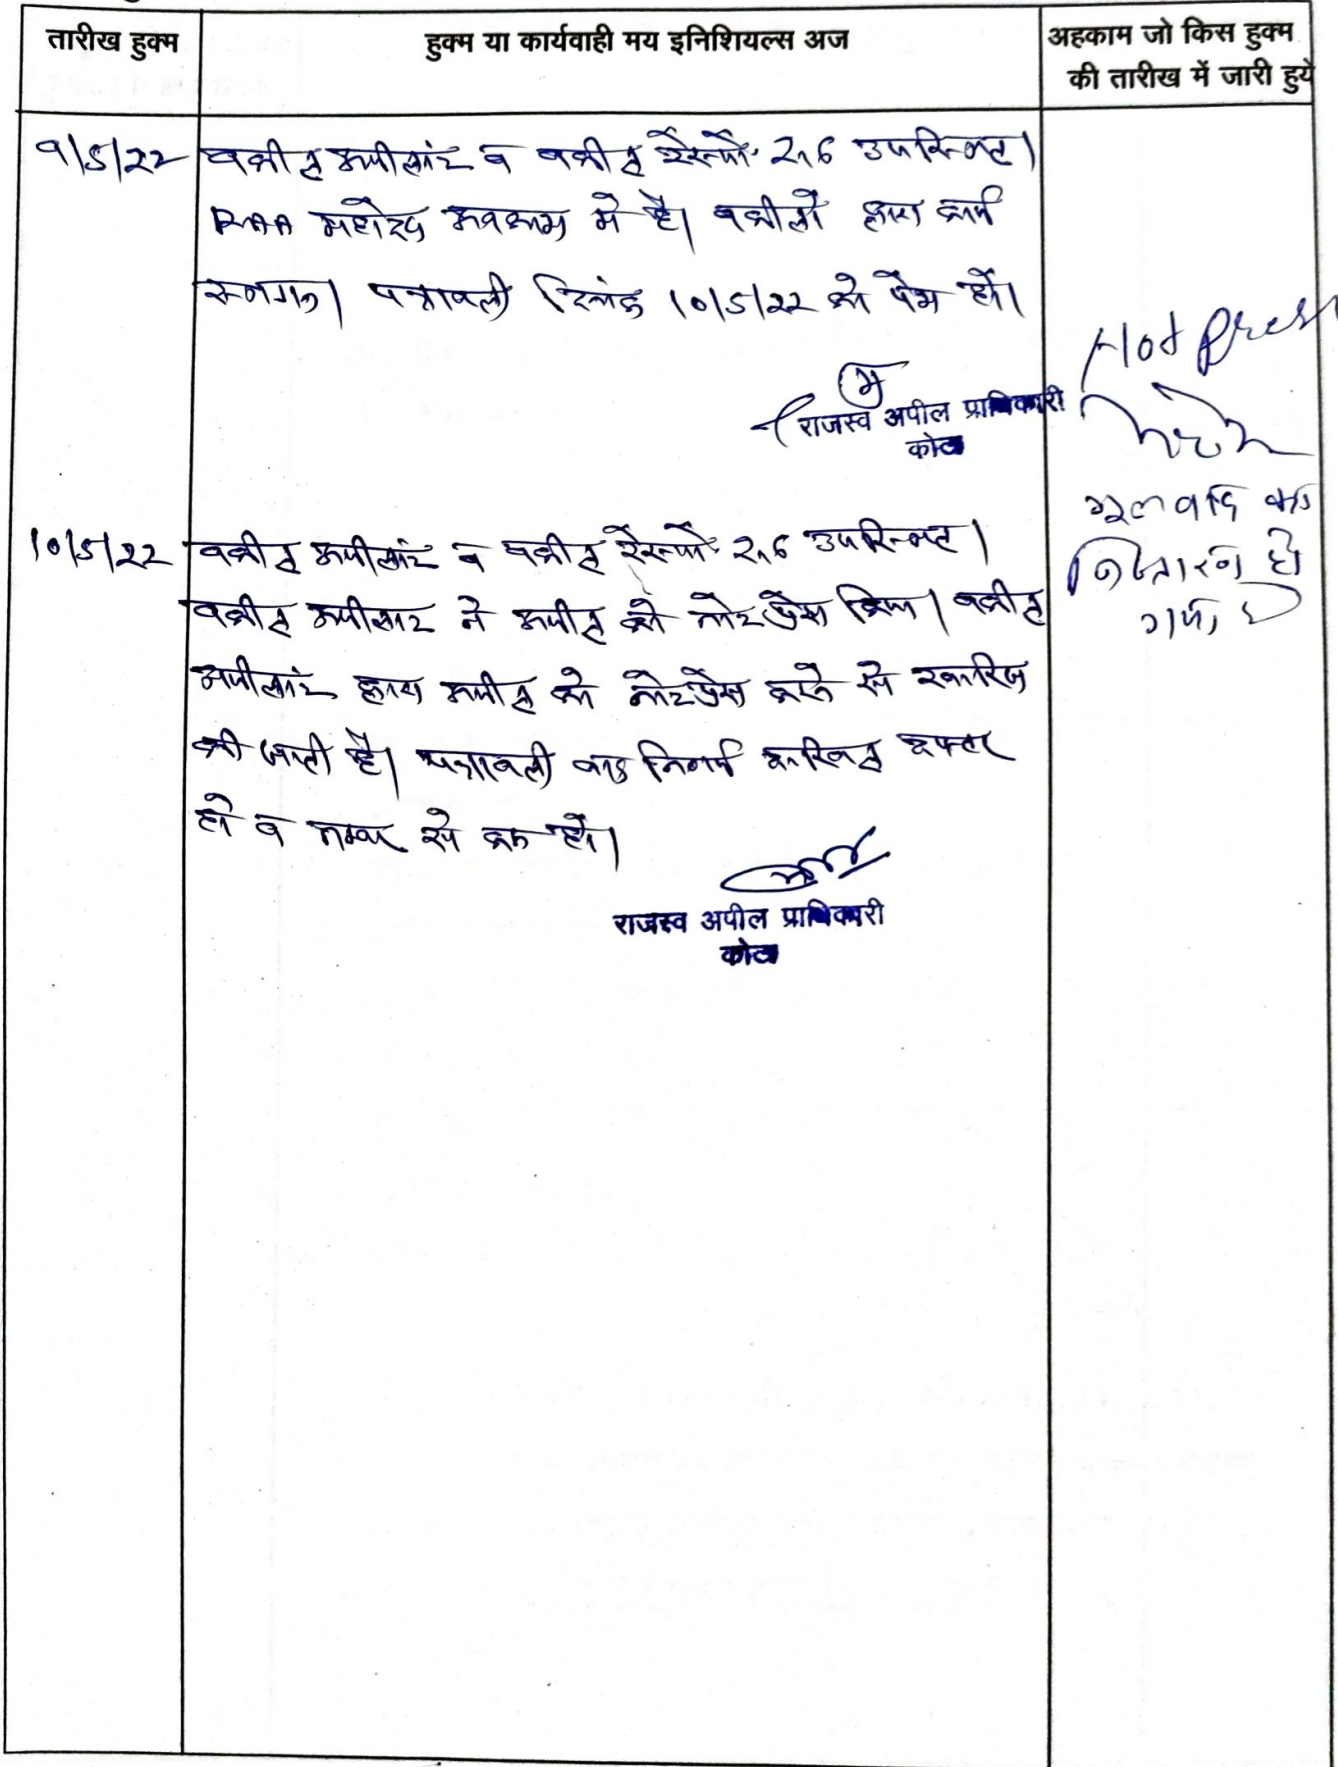 तारीख हुक्म
हुक्म या कार्यवाही मय इनिशियल्स अज
अहकाम जो किस हुक्म
की तारीख में जारी हुये
9/5/22
वकील अपीलांट व वकील रेस्पो. 2,6 उपस्थित।
RAA महोदय अवकाश में है। वकीलों द्वारा कार्य
स्थगन। पत्रावली दिनांक 10/5/22 को पेश हो।
राजस्व अपील प्राधिकारी
कोटा
Not press
मूल वाद का
निस्तारण हो
गया है
10/5/22
वकील अपीलांट व वकील रेस्पो. 2,6 उपस्थित।
वकील अपीलांट ने अपील को नोट प्रेस किया। वकील
अपीलांट द्वारा अपील को नोट प्रेस करने से खारिज
की जाती है। पत्रावली बाद निर्णय दाखिल दफ्तर
हो व नम्बर से कम हो।
राजस्व अपील प्राधिकारी
कोटा